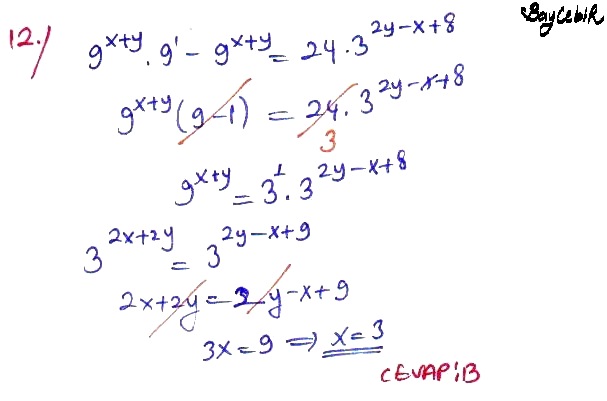 BayCebiR
12.) 9^{x+y} . 9^1 - 9^{x+y} = 24 . 3^{2y-x+8}
9^{x+y} (9-1) = 24 . 3^{2y-x+8}
3
9^{x+y} = 3^1 . 3^{2y-x+8}
3^{2x+2y} = 3^{2y-x+9}
2x+2y = 2y-x+9
3x = 9 ⇒ x = 3
CEVAP: B